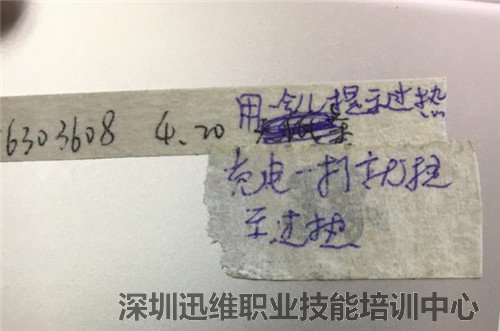 6303608 4.20 用一会儿提示过热
充电一打就提
示过热
深圳迅维职业技能培训中心